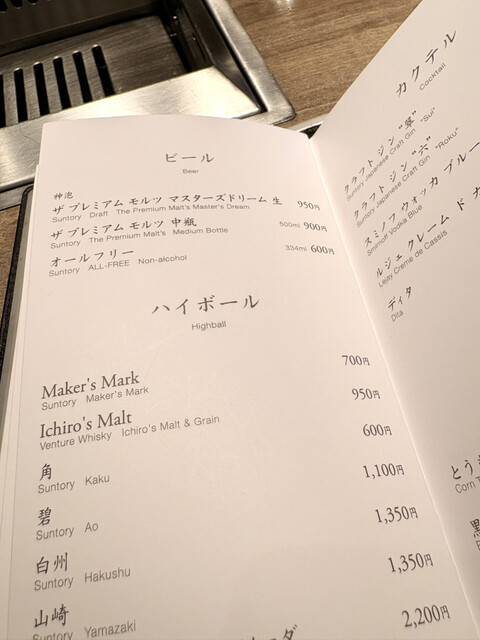 ビール
Beer
神泡
ザ プレミアム モルツ マスターズドリーム 生 950円
Suntory Draft The Premium Malt's Master's Dream
ザ プレミアム モルツ 中瓶 500ml 900円
Suntory The Premium Malt's Medium Bottle
オールフリー 334ml 600円
Suntory ALL-FREE Non-alcohol
ハイボール
Highball
Maker's Mark 700円
Suntory Maker's Mark
Ichiro's Malt 950円
Venture Whisky Ichiro's Malt & Grain
角 600円
Suntory Kaku
碧 1,100円
Suntory Ao
白州 1,350円
Suntory Hakushu
山崎 1,350円
Suntory Yamazaki
2,200円
カクテル
Cocktail
クラフト ジン "翠"
Suntory Japanese Craft Gin "Sui"
クラフト ジン "六"
Suntory Japanese Craft Gin "Roku"
スミノフ ウォッカ ブルー
Smirnoff Vodka Blue
ルジェ クレーム ド カ
Lejay Creme de Cassis
ディタ
Dita
とう
Corn